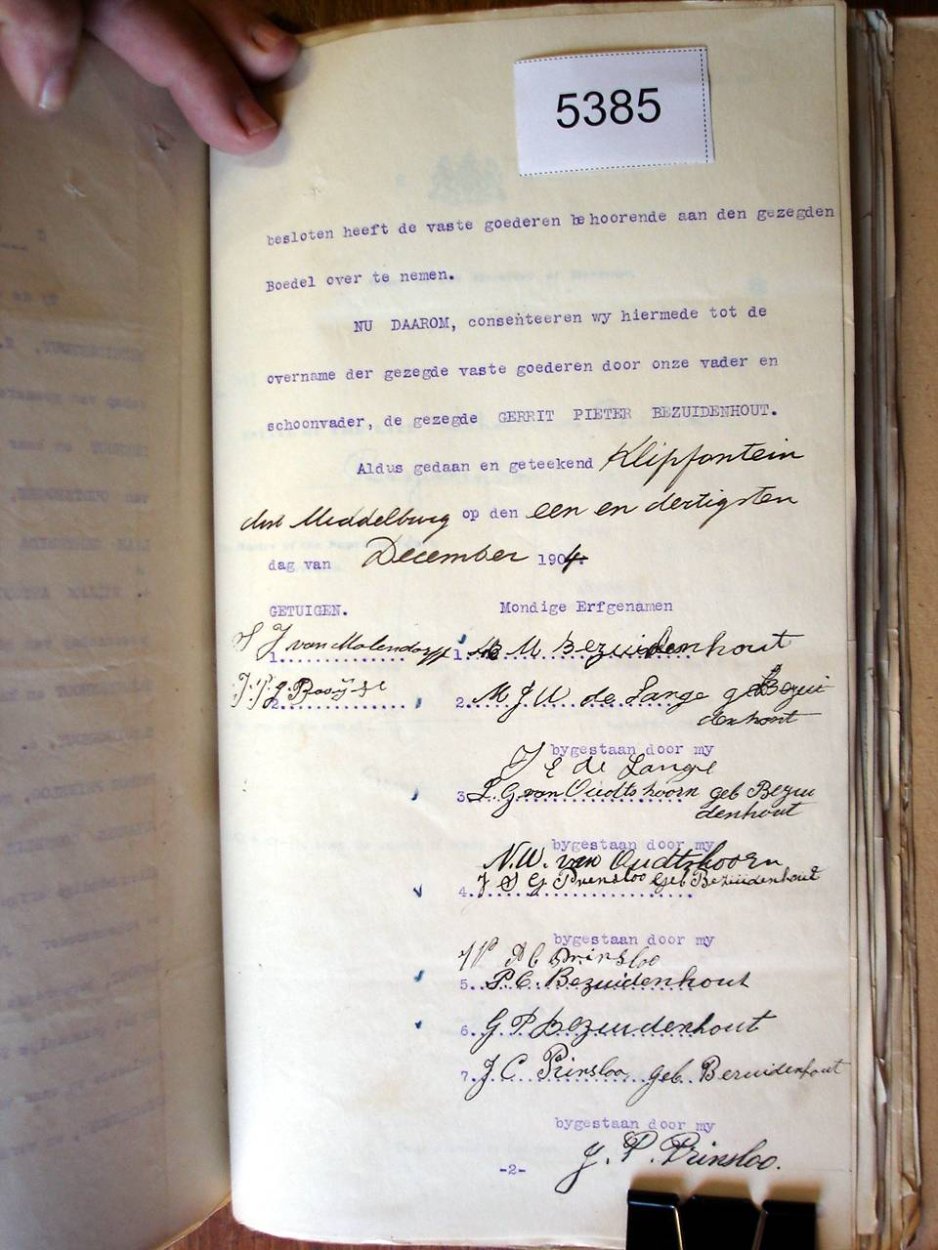 5385
besloten heeft de vaste goederen behoorende aan den gezegden
Boedel over te nemen.
NU DAAROM, consenteeren wy hiermede tot de
overname der gezegde vaste goederen door onze vader en
schoonvader, de gezegde GERRIT PIETER BEZUIDENHOUT.
Aldus gedaan en geteekend Klipfontein
dist Middelburg op den een en dertigsten
dag van December 1904.
GETUIGEN. Mondige Erfgenamen
1. J van Molendorff 1. M Bezuidenhout
2. 2. M J W de Lange geb Bezui
denhout
bygestaan door my
J E de Lange
3. L G van Oudtshoorn geb Bezui
denhout
bygestaan door my
N.W. van Oudtshoorn
4. J S G Prinsloo Geb Bezuidenhout
bygestaan door my
Prinsloo
5. P.C. Bezuidenhout
6. G P Bezuidenhout
7. J C Prinsloo geb. Bezuidenhout
bygestaan door my
J. P. Prinsloo.
-2-